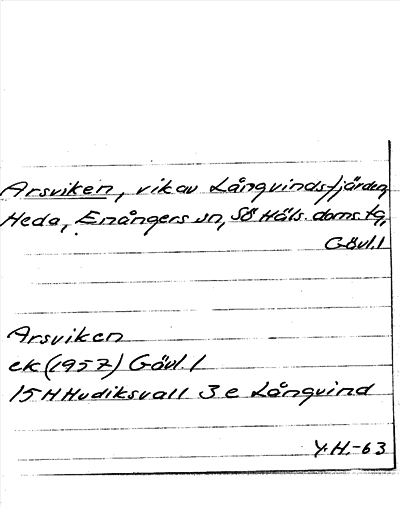 Arsviken, vik av Långvindsfjärden,
Heda, Enångers sn, Sö Häls. doms. tg,
Gävl. l
Arsviken
ek (1957) Gävl. l
15 H Hudiksvall 3 e Långvind
Y.H.-63